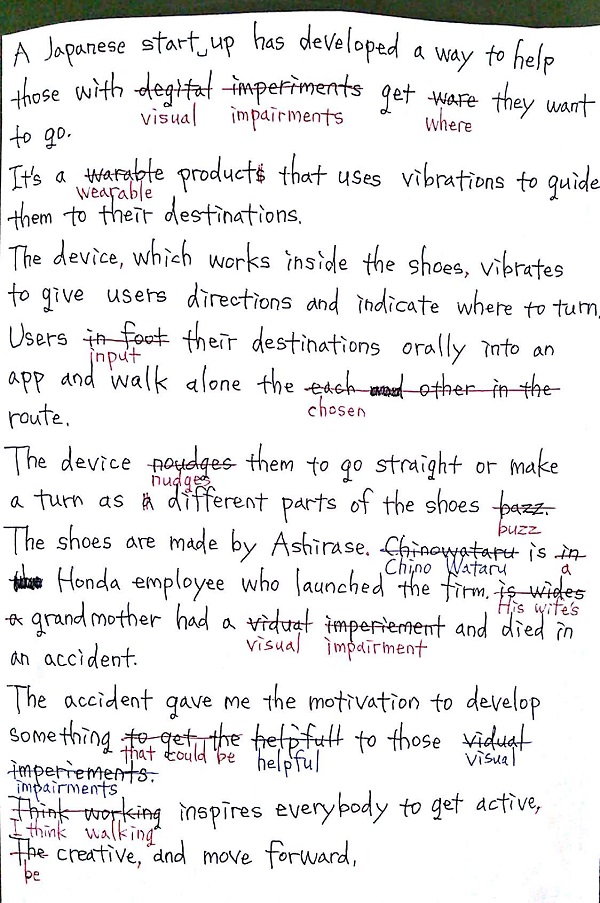 A Japanese start up has developed a way to help
those with degital imperiments get ware they want
visual impairments where
to go.
It's a warable products that uses vibrations to guide
wearable
them to their destinations.
The device, which works inside the shoes, vibrates
to give users directions and indicate where to turn.
Users in foot their destinations orally into an
input
app and walk alone the each and other in the
chosen
route.
The device noudges them to go straight or make
nudges
a turn as a different parts of the shoes bazz.
buzz
The shoes are made by Ashirase. Chinowataru is in
Chino Wataru a
the Honda employee who launched the firm. is wides
His wife's
a grandmother had a vidual imperiement and died in
visual impairment
an accident.
The accident gave me the motivation to develop
something to get the helpfull to those vidual
that could be helpful visual
imperiements.
impairments
Think working inspires everybody to get active,
I think walking
The creative, and move forward,
be